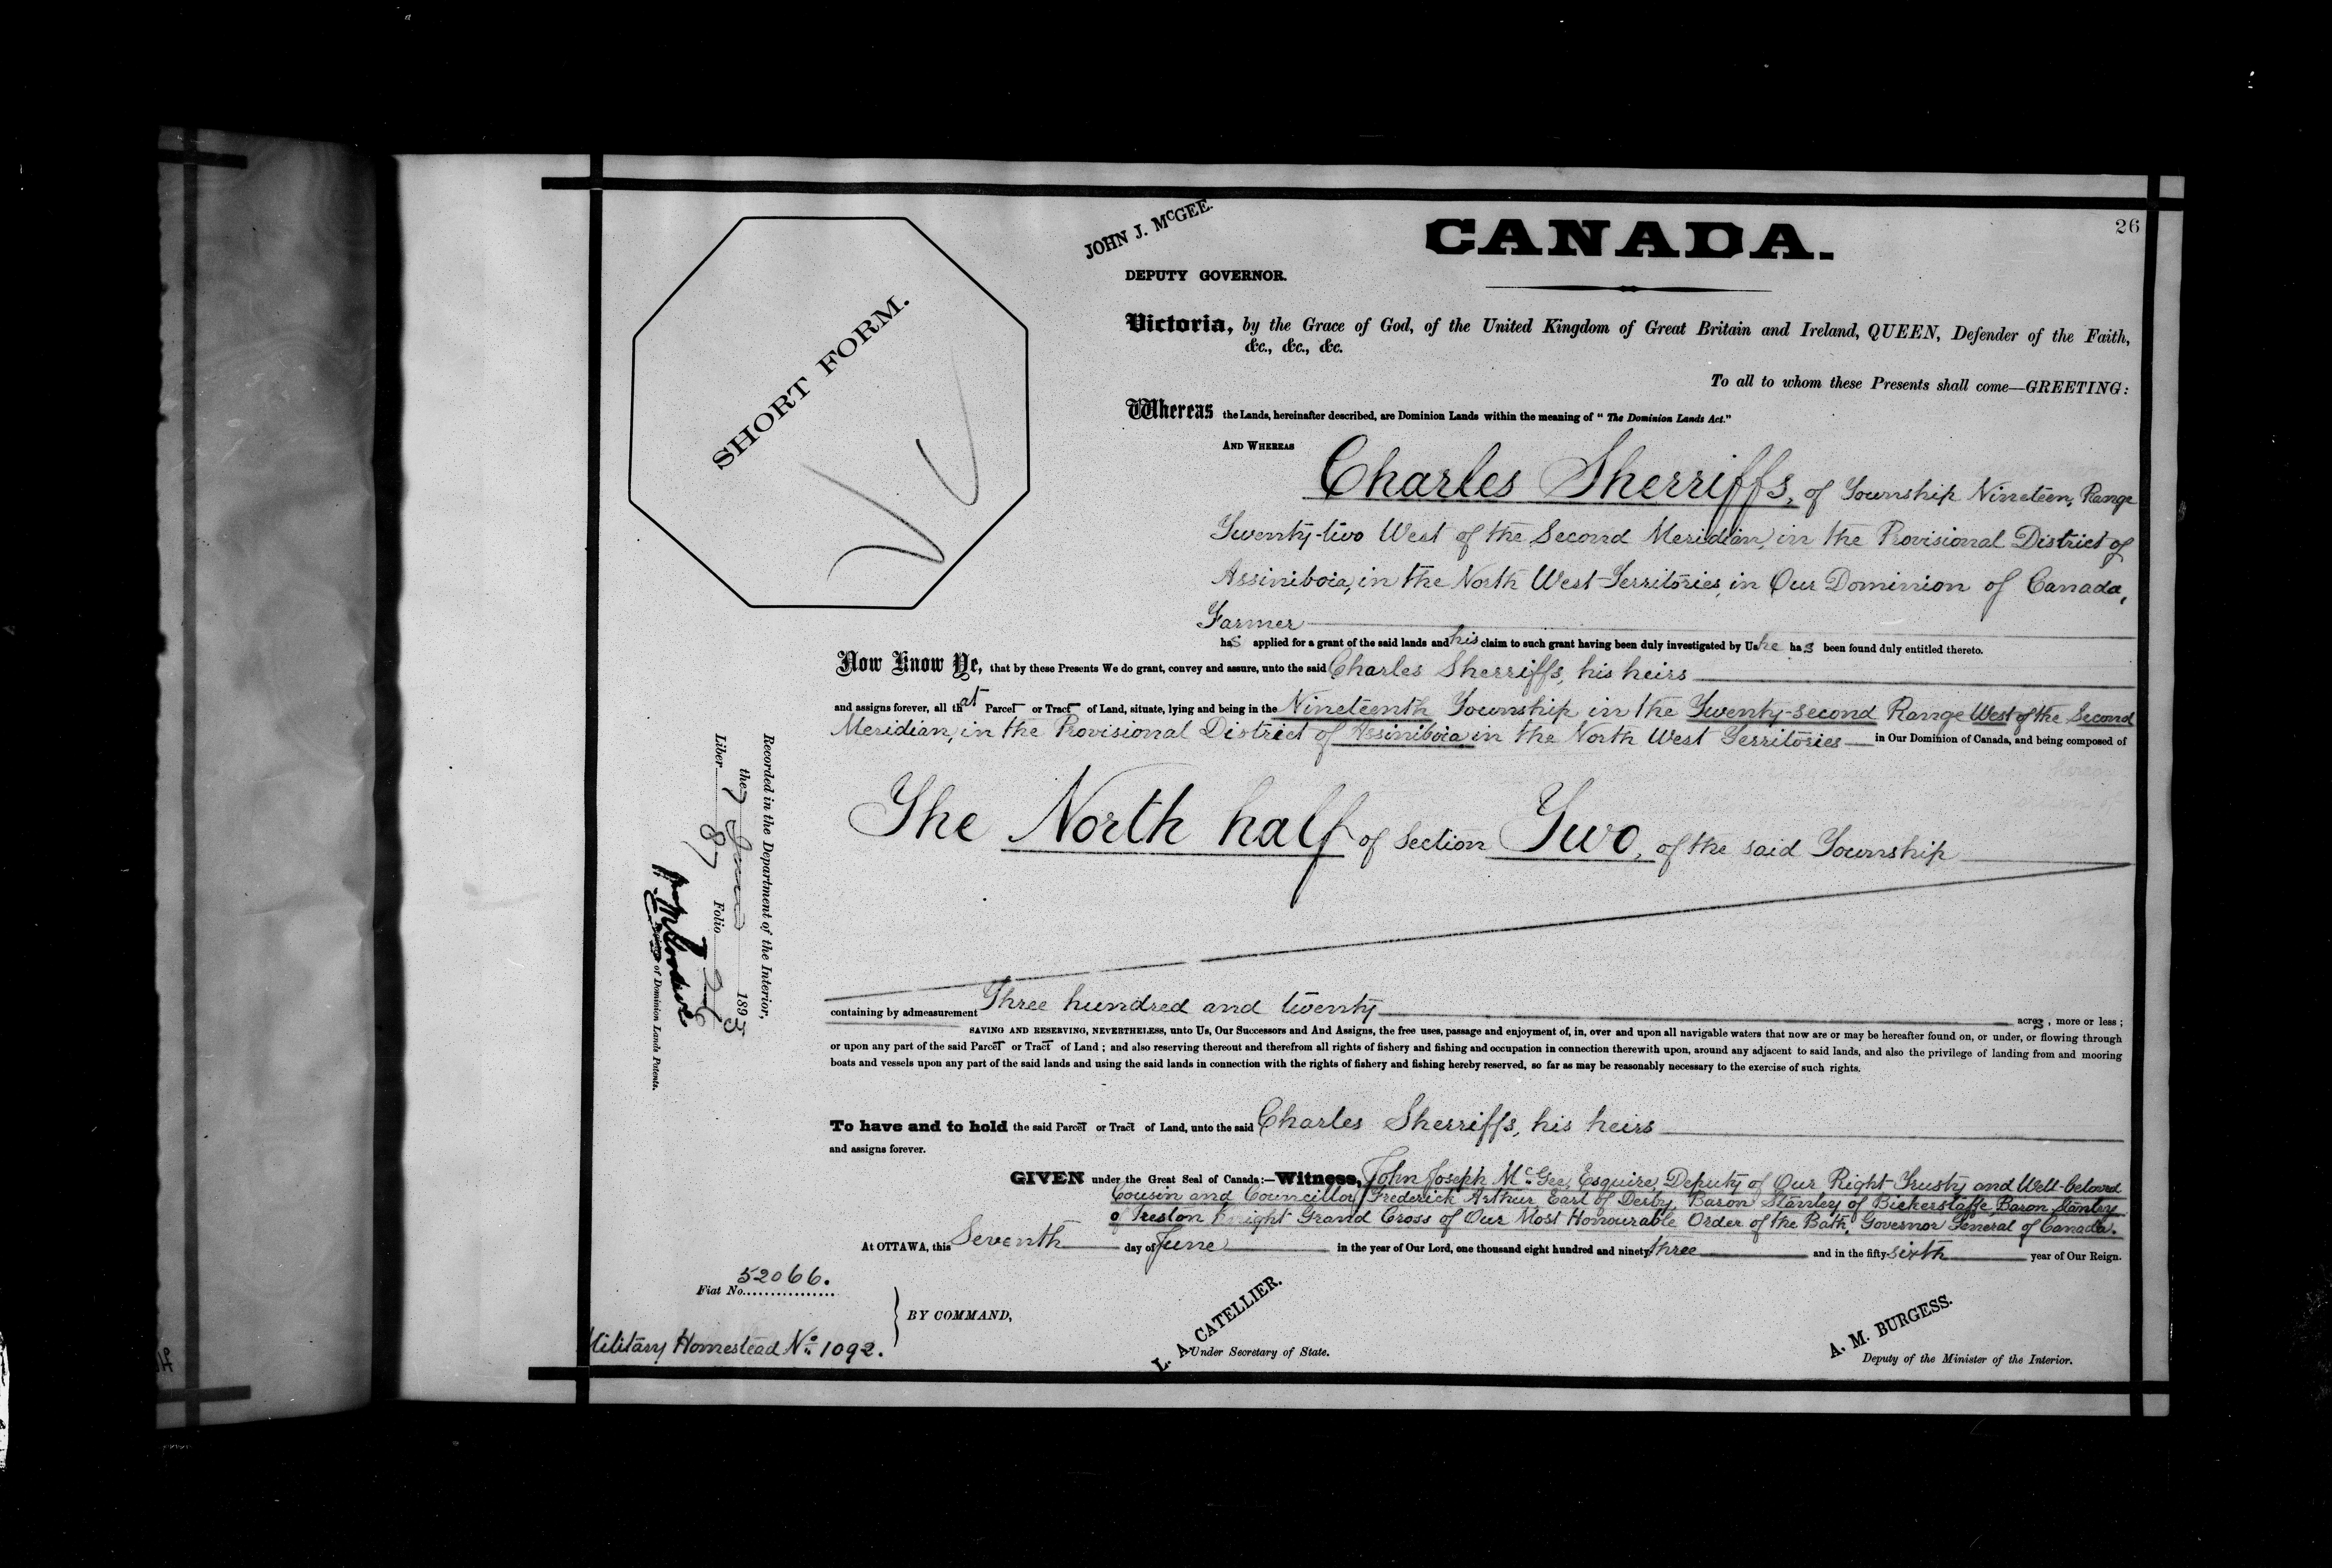 26
JOHN J. McGEE.
CANADA.
DEPUTY GOVERNOR.
SHORT FORM.
Victoria, by the Grace of God, of the United Kingdom of Great Britain and Ireland, QUEEN, Defender of the Faith,
&c., &c., &c.
To all to whom these Presents shall come—GREETING:
Whereas the Lands, hereinafter described, are Dominion Lands within the meaning of "The Dominion Lands Act."
AND WHEREAS
Charles Sherriffs, of Township Nineteen, Range
Twenty-two West of the Second Meridian, in the Provisional District of
Assiniboia, in the North West Territories, in Our Dominion of Canada,
Farmer
has applied for a grant of the said lands and his claim to such grant having been duly investigated by Us he has been found duly entitled thereto.
Now Know Ye, that by these Presents We do grant, convey and assure, unto the said Charles Sherriffs, his heirs
and assigns forever, all that Parcel or Tract of Land, situate, lying and being in the Nineteenth Township in the Twenty-second Range West of the Second
Meridian, in the Provisional District of Assiniboia in the North West Territories in Our Dominion of Canada, and being composed of
The North half of Section Two, of the said Township
containing by admeasurement Three hundred and twenty acres, more or less;
SAVING AND RESERVING, NEVERTHELESS, unto Us, Our Successors and And Assigns, the free uses, passage and enjoyment of, in, over and upon all navigable waters that now are or may be hereafter found on, or under, or flowing through
or upon any part of the said Parcel or Tract of Land; and also reserving thereout and therefrom all rights of fishery and fishing and occupation in connection therewith upon, around any adjacent to said lands, and also the privilege of landing from and mooring
boats and vessels upon any part of the said lands and using the said lands in connection with the rights of fishery and fishing hereby reserved, so far as may be reasonably necessary to the exercise of such rights.
To have and to hold the said Parcel or Tract of Land, unto the said Charles Sherriffs, his heirs
and assigns forever.
GIVEN under the Great Seal of Canada:—Witness, John Joseph McGee, Esquire, Deputy of Our Right Trusty and Well-beloved
Cousin and Councillor, Frederick Arthur, Earl of Derby, Baron Stanley of Bickerstaffe, Baron Stanley
of Preston Knight Grand Cross of Our Most Honourable Order of the Bath, Governor General of Canada.
At OTTAWA, this Seventh day of June in the year of Our Lord, one thousand eight hundred and ninety three and in the fifty sixth year of Our Reign.
Fiat No. 52066.
BY COMMAND,
Military Homestead No. 1092.
L. A. CATELLIER.
Under Secretary of State.
A. M. BURGESS.
Deputy of the Minister of the Interior.
Recorded in the Department of the Interior,
the 7 June 1893
Liber 87 Folio 26
of Dominion Lands Patents.